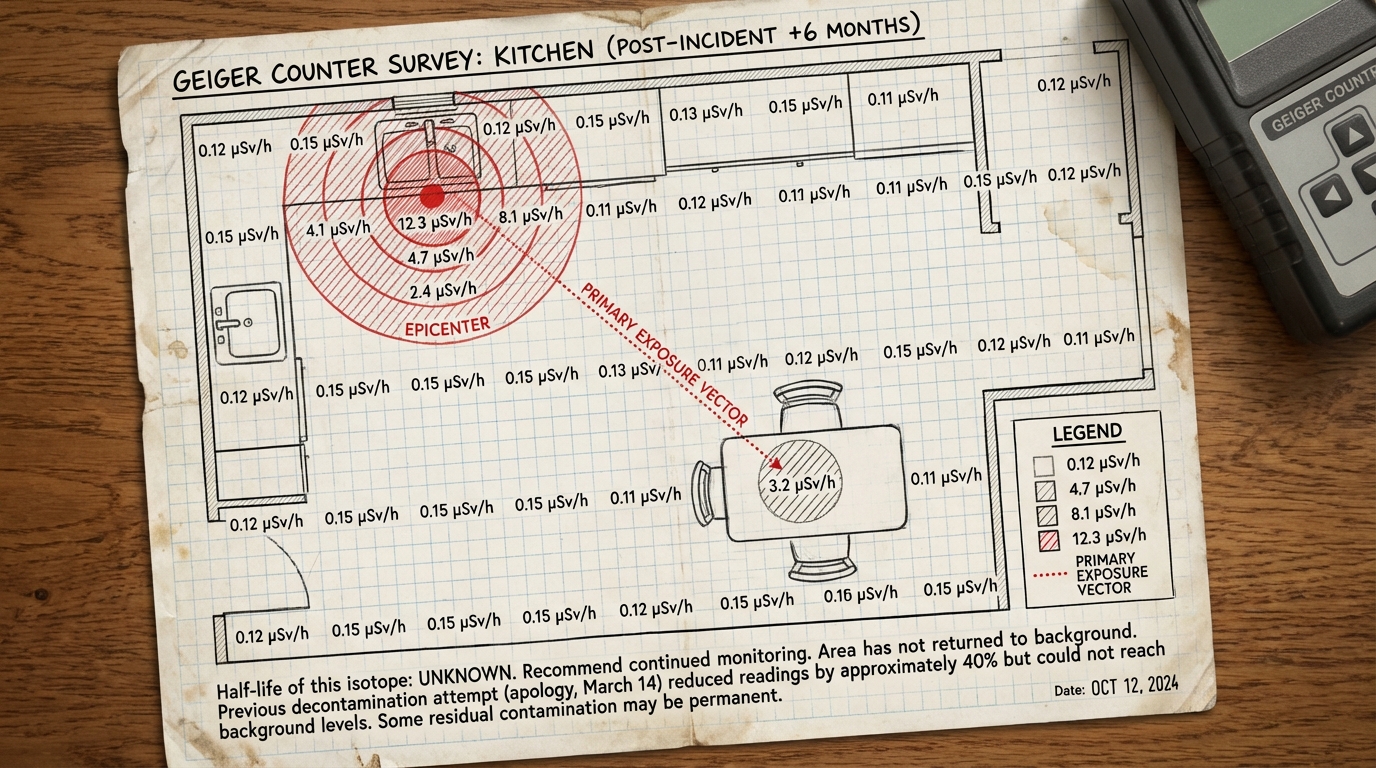 GEIGER COUNTER SURVEY: KITCHEN (POST-INCIDENT +6 MONTHS)
0.12 µSv/h
0.15 µSv/h
0.12 µSv/h
0.15 µSv/h
0.13 µSv/h
0.15 µSv/h
0.11 µSv/h
0.12 µSv/h
0.15 µSv/h
4.1 µSv/h
12.3 µSv/h
8.1 µSv/h
0.11 µSv/h
0.12 µSv/h
0.11 µSv/h
0.11 µSv/h
0.15 µSv/h
0.12 µSv/h
4.7 µSv/h
2.4 µSv/h
EPICENTER
PRIMARY EXPOSURE VECTOR
0.12 µSv/h
0.15 µSv/h
0.15 µSv/h
0.15 µSv/h
0.13 µSv/
0.11 µSv/h
0.12 µSv/h
0.15 µSv/h
0.12 µSv/h
0.11 µSv/h
0.12 µSv/h
0.15 µSv/h
0.15 µSv/h
0.15 µSv/h
0.11 µSv/h
3.2 µSv/h
0.11 µSv/h
0.12 µSv/h
0.15 µSv/h
0.15 µSv/h
0.15 µSv/h
0.12 µSv/h
0.15 µSv/h
0.16 µSv/h
0.15 µSv/h
LEGEND
0.12 µSv/h
4.7 µSv/h
8.1 µSv/h
12.3 µSv/h
PRIMARY
EXPOSURE
VECTOR
Half-life of this isotope: UNKNOWN. Recommend continued monitoring. Area has not returned to background.
Previous decontamination attempt (apology, March 14) reduced readings by approximately 40% but could not reach
background levels. Some residual contamination may be permanent.
Date: OCT 12, 2024
GEIGER COUNT